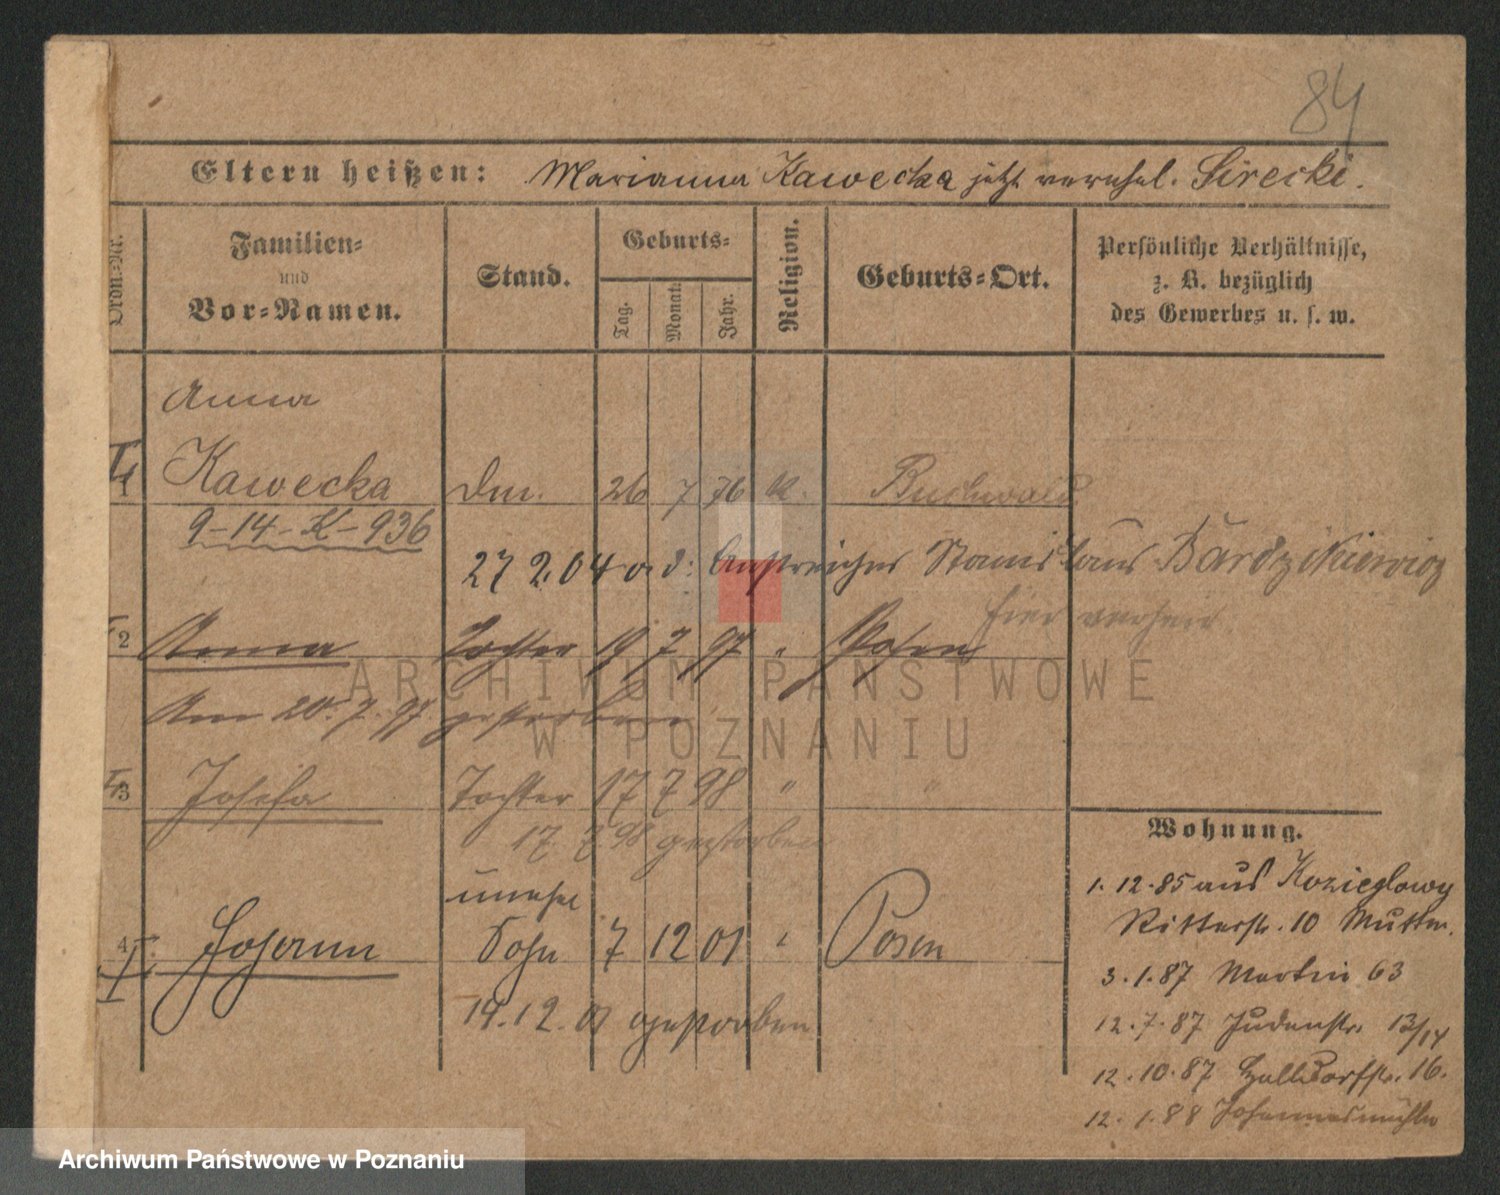 84
Eltern heißen: Marianna Kawecka jetzt verehel. Sirecki.
Ordn.-Nr.
Familien-
und
Vor-Namen.
Stand.
Geburts-
Tag.
Monat.
Jahr.
Religion.
Geburts-Ort.
Persönliche Verhältnisse,
z. B. bezüglich
des Gewerbes u. s. w.
Anna
1 Kawecka Dm. 26 7 76 k. Buchwald
9-14-K-936
27 2. 04 a. d. Anstreicher Stanislaus
hier verheir.
2 Anna Tochter 19 7 97 " Posen
Am 20. 7. 97 gestorben
3 Josefa Tochter 17 7 98 " "
17. 7. 98 gestorben
unehel
4 Sohn 7 12 01 " Posen
14. 12. 01 gestorben
Wohnung.
1. 12. 85 aus Kozieglowy
Ritterstr. 10 Mutter.
3. 1. 87 Martin 63
12. 7. 87 Judenstr. 13/14
12. 10. 87 Halldorfstr. 16.
12. 1. 88 Johannesmühle
ARCHIWUM PAŃSTWOWE
W POZNANIU
Archiwum Państwowe w Poznaniu